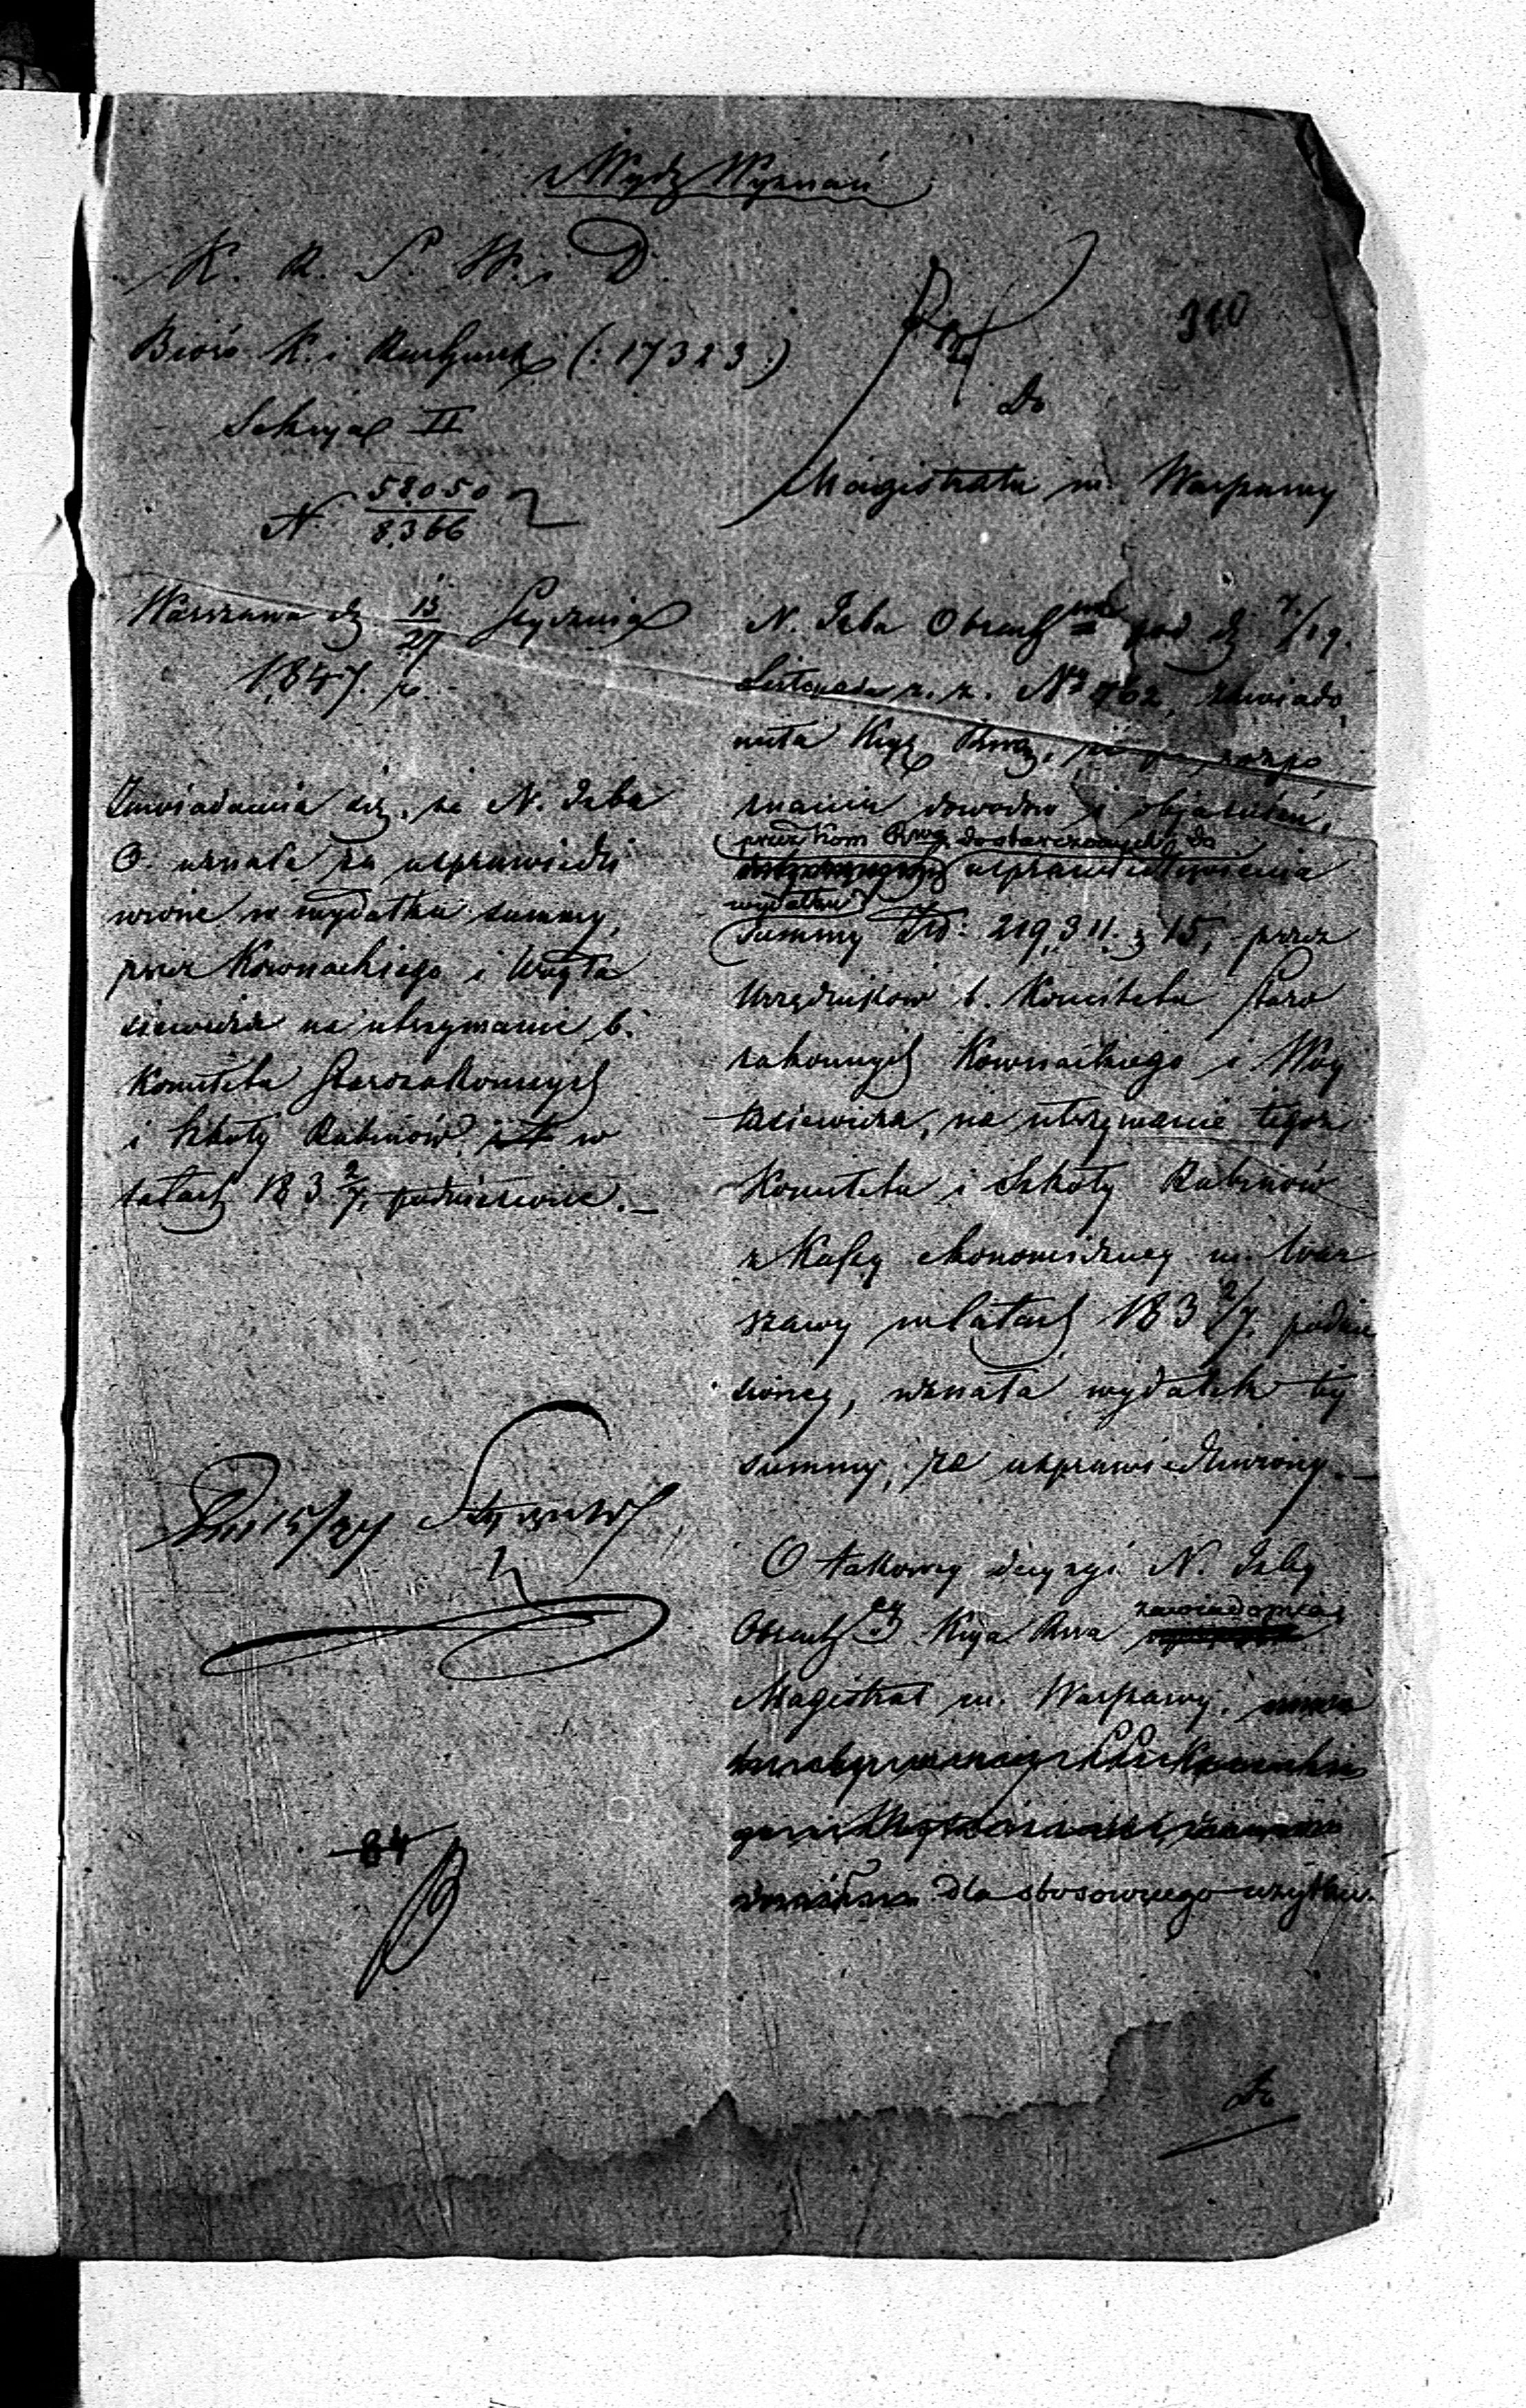 Wydz Wyznań
K. R. S. W. i D.
310
Bióro K. i Rachunk (: 17323 :)
Sekcya II
N 58050
8366
Warszawa dz 15
27 Stycznia
1847. r.
Zawiadamia się, że N. Izba
O. uznała za usprawiedli
wione w wydatku summy,
przez Kownackiego i Woyta
siewicza na utrzymanie b.
Komitetu Starozakonnych
i Szkoły Rabinów w
latach 183 2/7, podniesione.
Dnia 15/27 Stycznia
84
Do
Magistratu m. Warszawy
N. Izba Obrach pod dz 7/19.
Listopada r. z. No 762, zawiado
miła Kssę Rwą, że po rozpo
znaniu dowodów i objaśnień,
przez Kom Rwą dostarczonych do
usprawiedliwienia
wydatku
Summy Złp: 219,311. g 15, przez
Urzędników b. Komitetu Staro
zakonnych Kownackiego i Woy
tasiewicza, na utrzymanie tegoż
Komitetu i Szkoły Rabinów
z Kassy ekonomiczney m. War
szawy w latach 183 2/7, podnie
sioney, uznała wydatek tey
summy, za usprawiedliwiony.
O takowey decyzyi N. Izby
Obrach Kssya Rwa zawiadamia
Magistrat m. Warszawy.
dla stosownego użytku.
Do